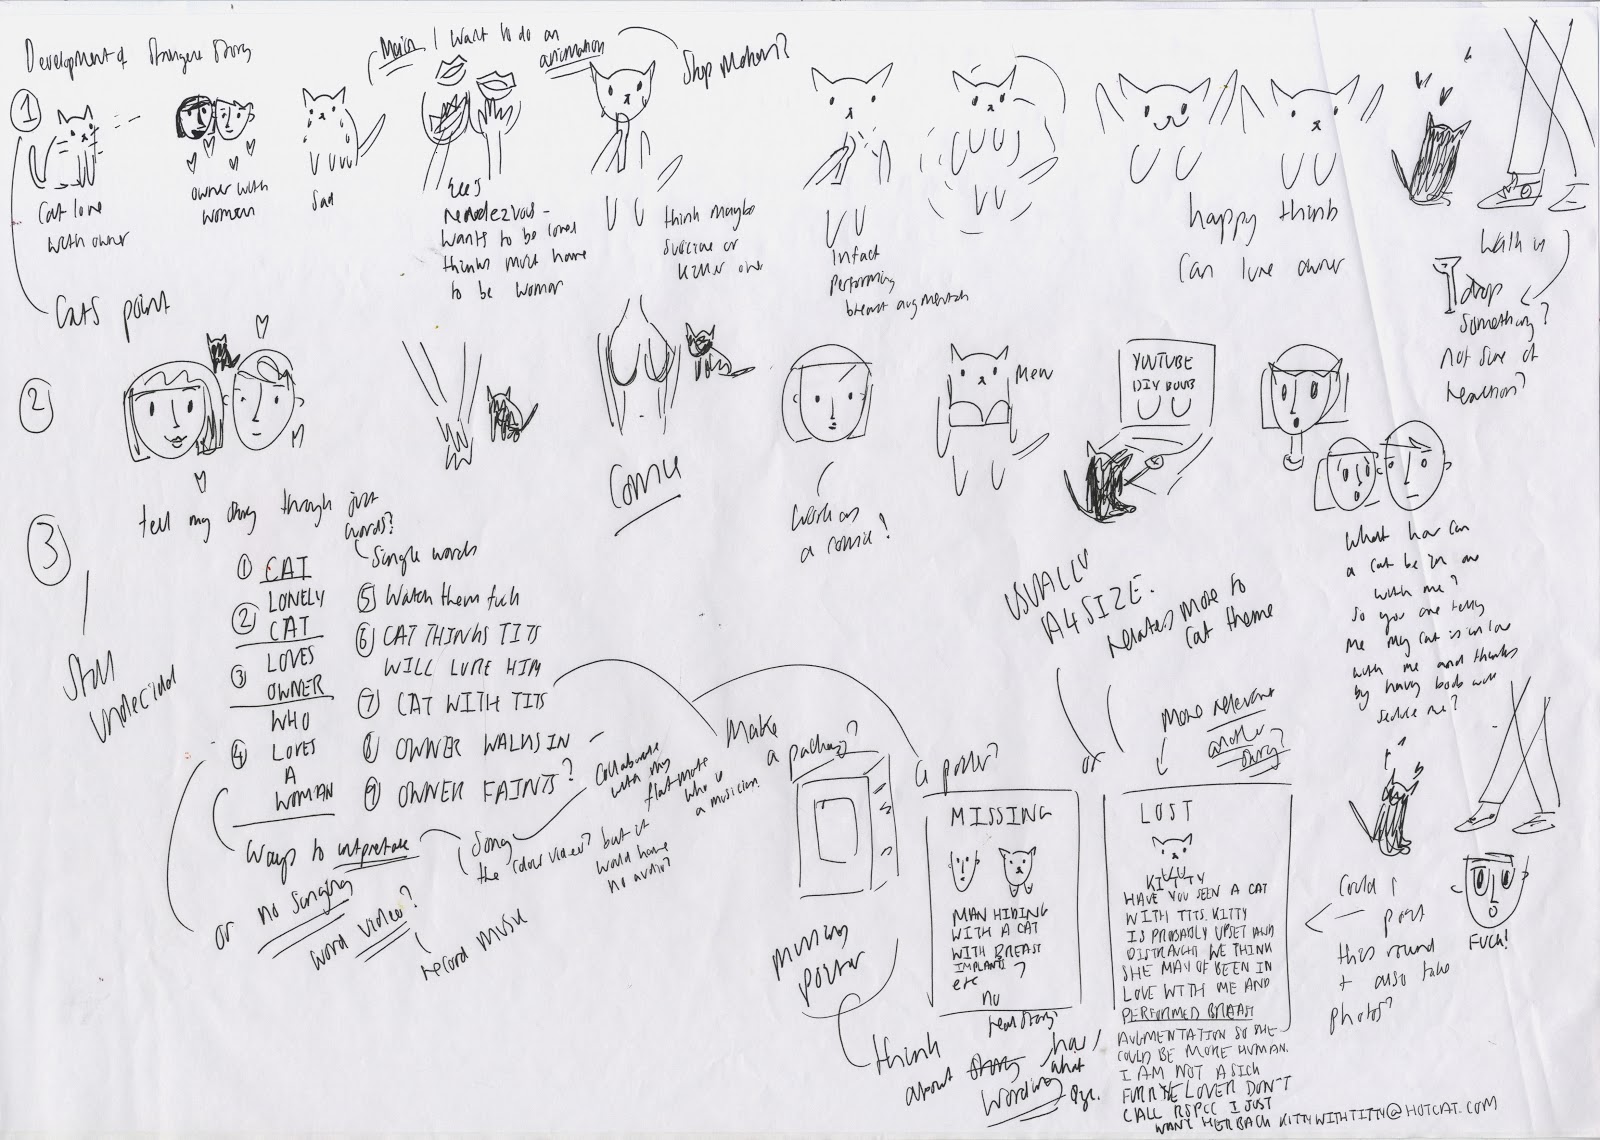 Development of Strangers Story
Main I want to do an
animation
Stop Motion?
1
Cat love
with owner
owner with
woman
Sad
Sees
rendezvous -
wants to be loved
thinks must have
to be woman
think maybe
suicide or
killer one
Infact
performing
breast augmentation
happy think
can love owner
Walk in
drop
something?
not sure of
reaction?
Cats point
2
Comic
Work as
a comic!
Mew
YOUTUBE
DIY BOOB
3
tell my story through just
words?
Single words
Still
Undecided
1 CAT
LONELY
2
CAT
LOVES
3
OWNER
WHO
4 LOVES
A
WOMAN
5 Watch them fuck
6 CAT THINKS TITS
WILL LURE HIM
7 CAT WITH TITS
8 OWNER WALKS IN
9 OWNER FAINTS?
Ways to interpretate
Song
collaborate
with my
flat mate
who is
a musician
the colour video? but it
would have
no audio?
or no singing
word video?
record music
Make
a package?
a poster?
or
USUALLY
A4 SIZE.
relates more to
cat theme
More relevant
another
story?
What how can
a cat be in love
with me?
So you are telling
me my cat is in love
with me and thinks
by having boobs will
seduce me?
Missing
poster
MISSING
MAN HIDING
WITH A CAT
WITH BREAST
IMPLANTS
etc ?
no
real story
think
about story how/
wording what
LOST
KITTY
HAVE YOU SEEN A CAT
WITH TITS. KITTY
IS PROBABLY UPSET AND
DISTRAUGHT WE THINK
SHE MAY OF BEEN IN
LOVE WITH ME AND
PERFORMED BREAST
AUGMENTATION SO SHE
COULD BE MORE HUMAN.
I AM NOT A SICK
LOVER DON'T
CALL RSPCC I JUST
WANT HER BACK KITTYWITHTITTY@HOTCAT.COM
Could I
post
this round
+ also take
photos?
FUCK!